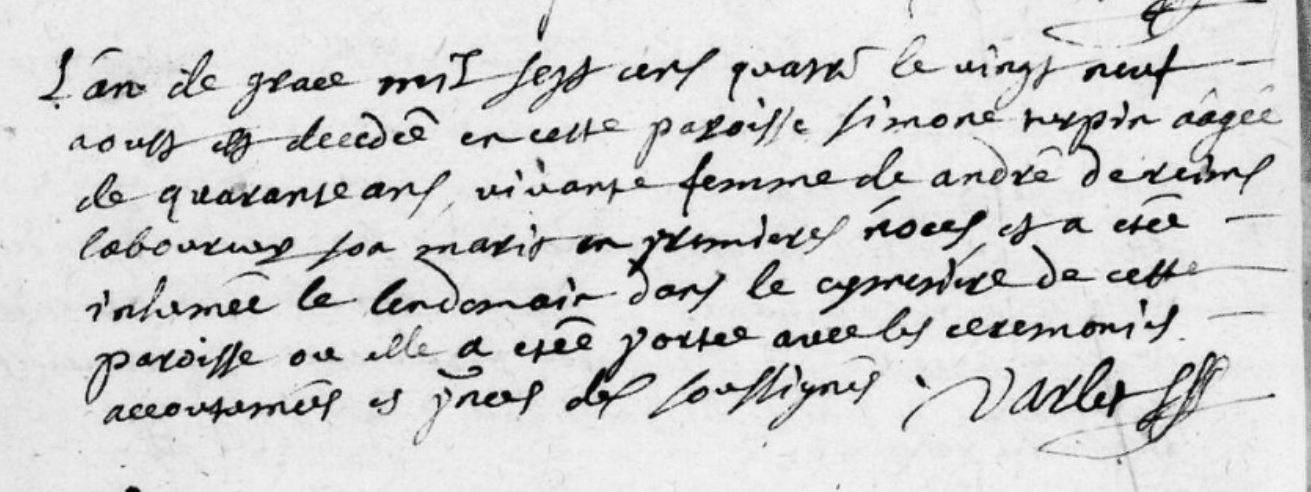 L'an de grace mil sept cens quattre le vingt neuf
aoust est decedée en cette paroisse simone turpin aagée
de quarante ans, vivante femme de andré de reims
laboureur son marit en premieres nôces et a etée
inhumée le lendemain dans le cymetiere de cette
paroisse ou elle a etée portée avec les ceremonies
accoutumées es pnces des soussignés Varlet